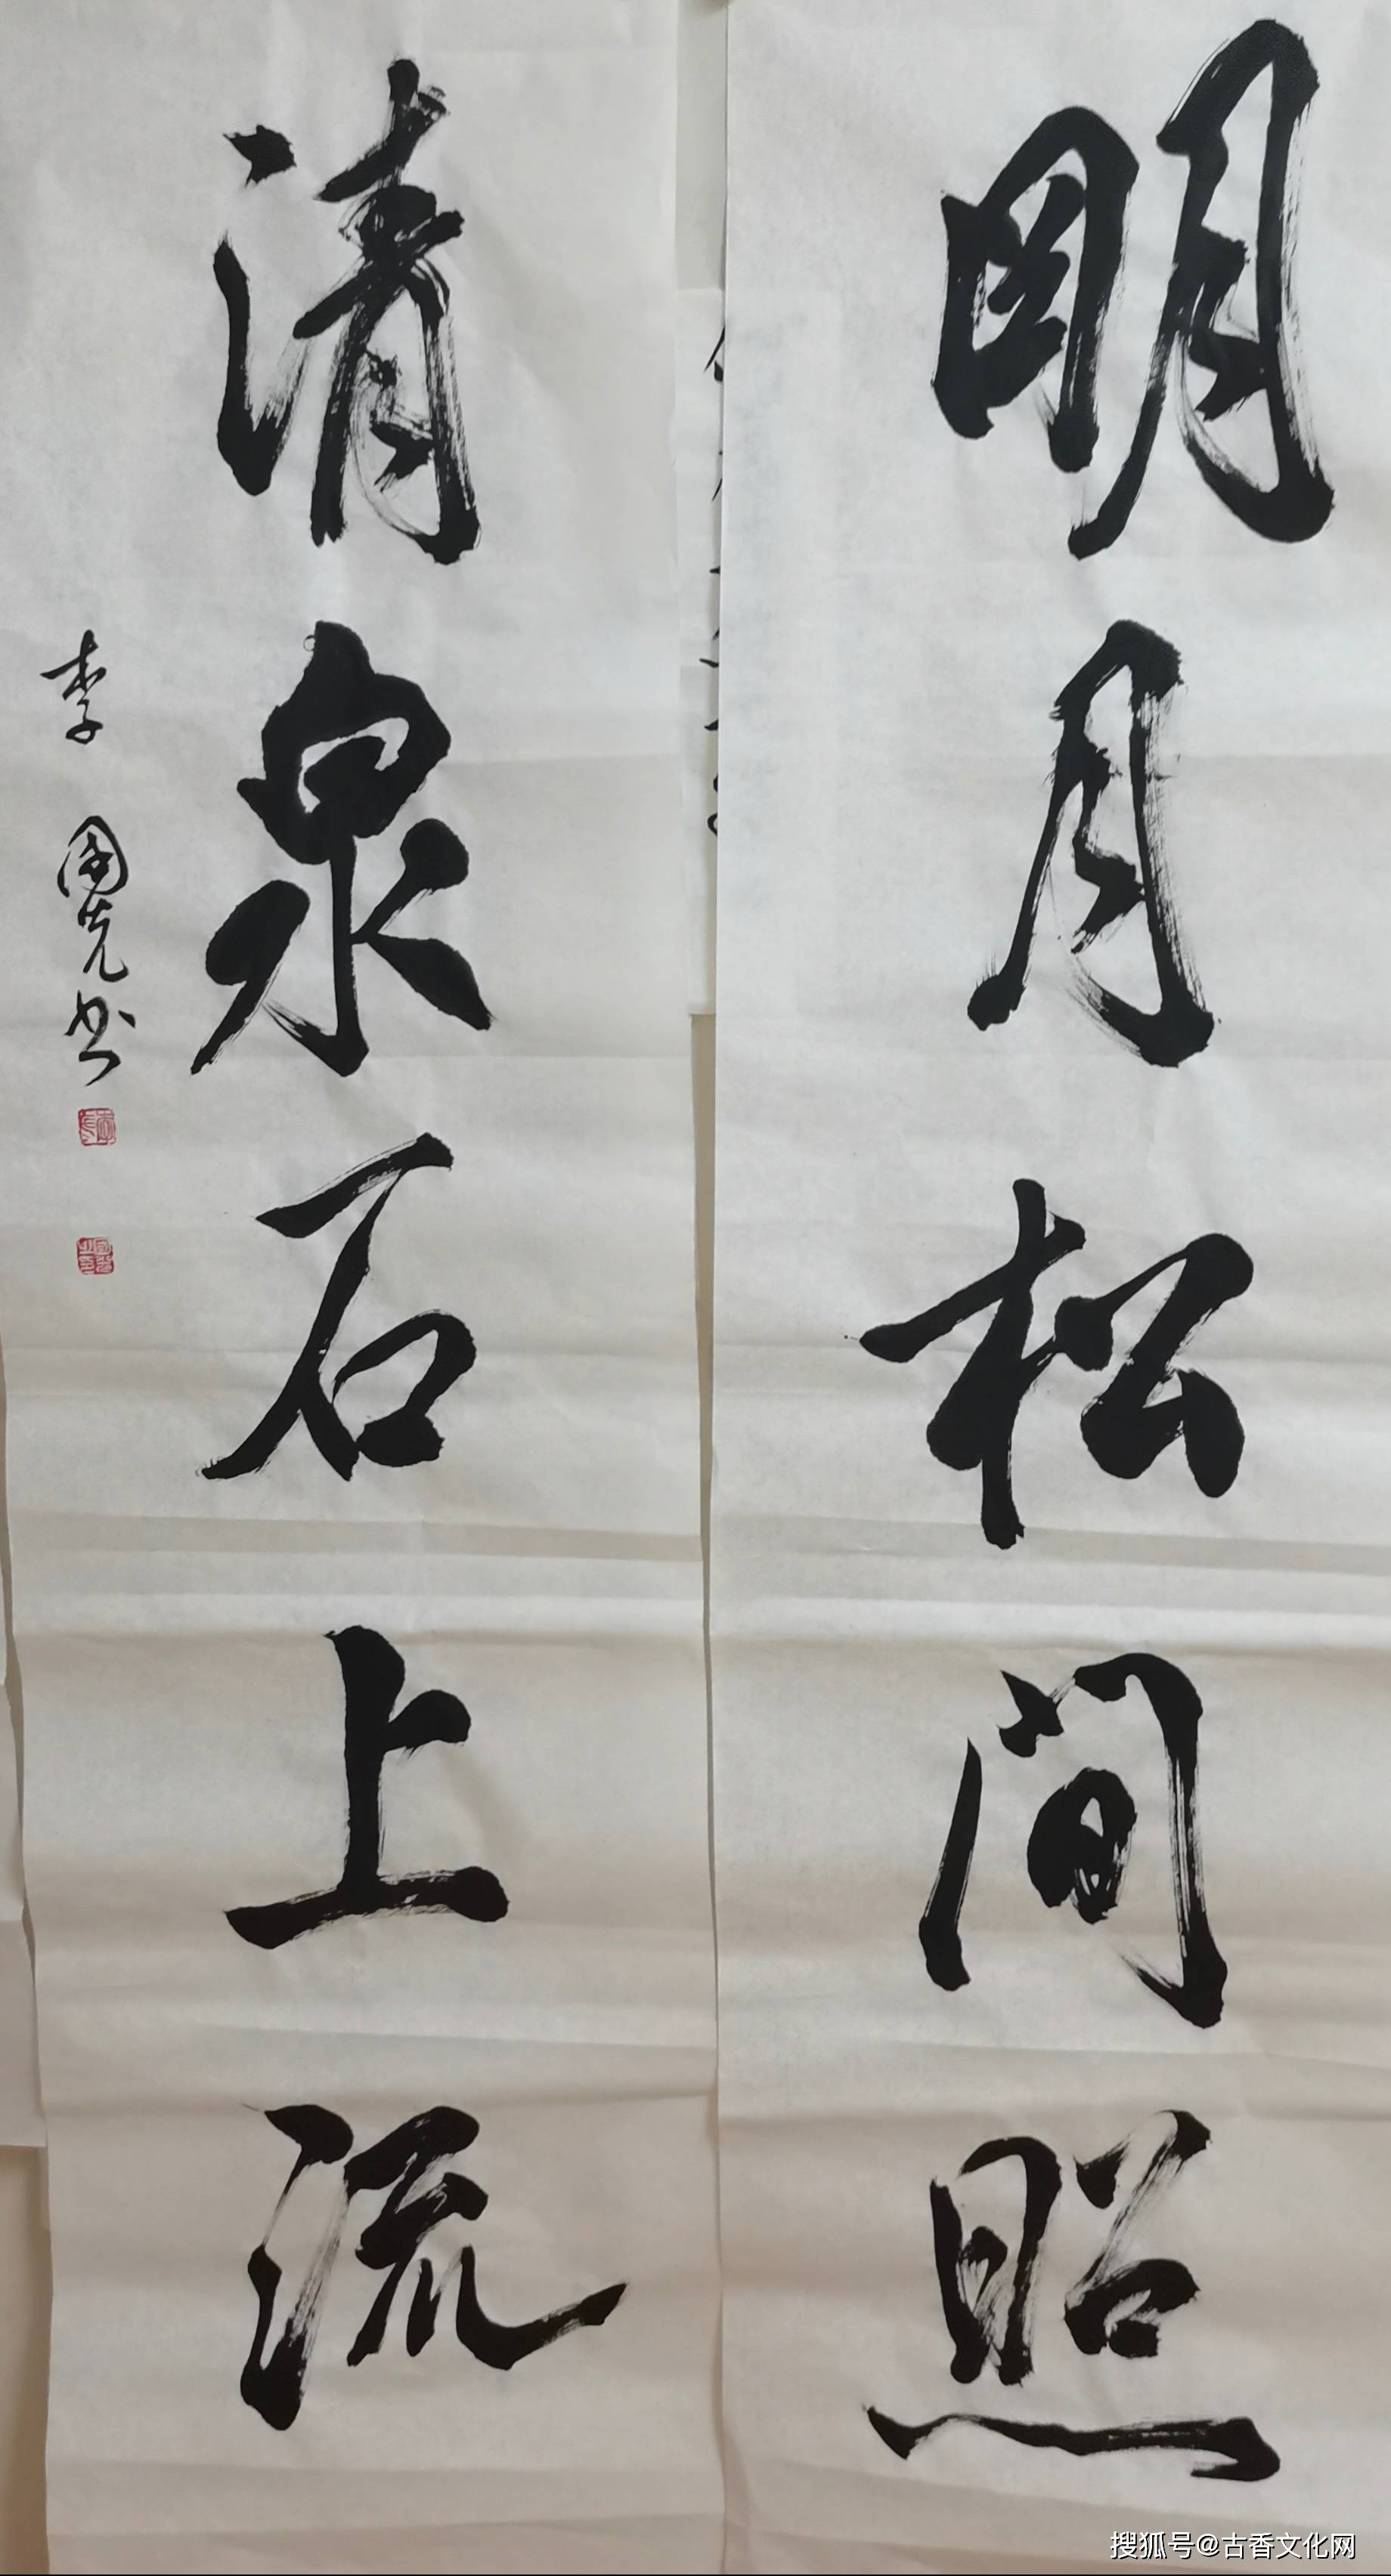 明月松间照
清泉石上流
李国先书
搜狐号@古香文化网